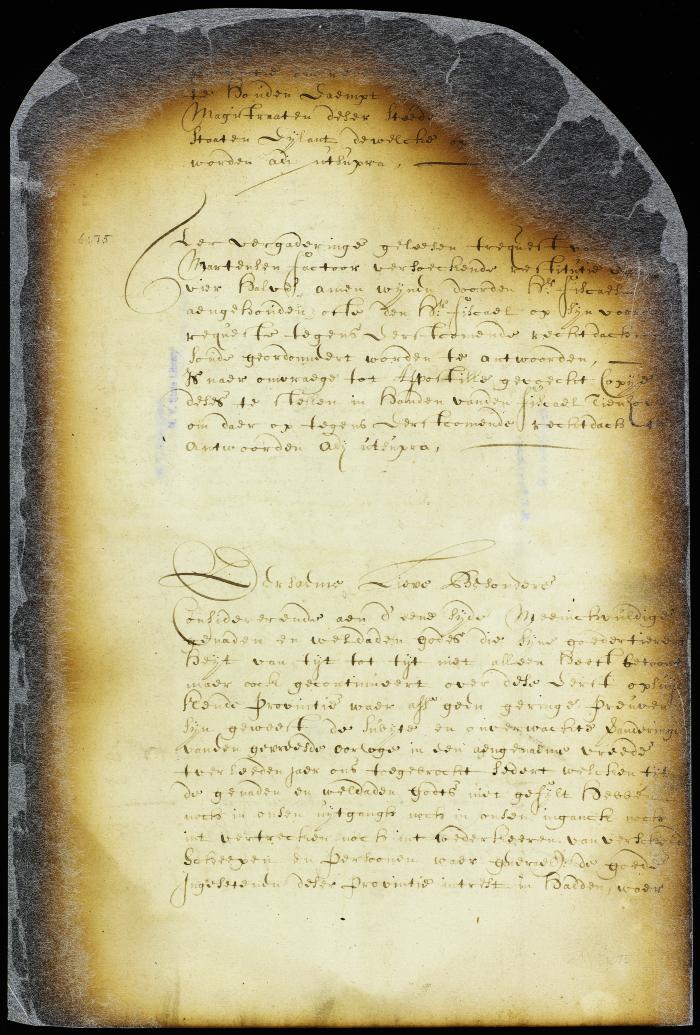 te houden daempt
Magistraaten deser steede
Staaten Eylant dewelcke
worden adj utsupra,
6175
Ter vergaderinge gelesen trequest van
Martensen factoor versoeckende restitutie
vier halve amen wijnen door den Hr. fiscael
aengehouden, ofte den Hr. fiscael op sijn voors
requeste tegens d'erstcomende rechtdach
soude geordonneert worden te antwoorden,
Is naer omvraege tot Appostille geveecht Copye
deses te stellen in handen vanden fiscael Tienho
om daer op tegens d'erstcomende rechtdach te
Antwoorden Adj utsupra,
Eersaeme Lieve Besondere
Considererende aen d'eene syde Meenichvuldige
genaden en weldaden Godes die syne goedertieren
heyt van tijt tot tijt niet alleen heeft betoont
maer oock gecontinueert over dese eerst opluij
kende Provintie waer aff geen geringe preuven
syn geweest de subyte en onverwachte Veranderinge
vanden gevreesde oorloge in een aengenaeme vreede
tverleeden jaer ons toegebrocht sedert welcken tijt
de genaden en weldaden Godts niet gefylt hebben
noch in onsen uytgangh noch in onsen inganck noch
int vertrecken noch int wederkeeren van verscheyde
Scheepen en Persoonen waer de goede
Ingesetenen deser Provintie intrest in hadden, waer